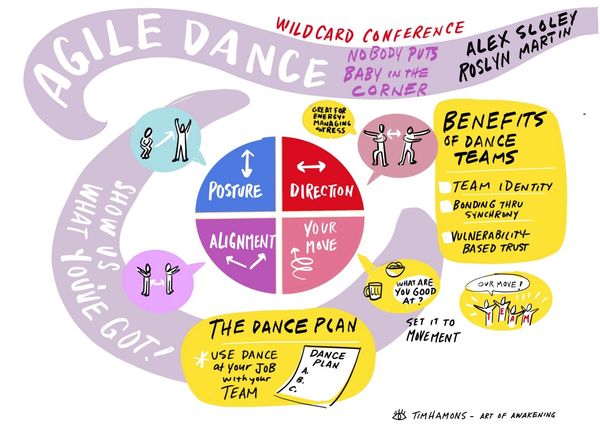 AGILE DANCE
WILDCARD CONFERENCE
NOBODY PUTS
BABY IN THE
CORNER
ALEX SLOLEY
ROSLYN MARTIN
SHOW US
WHAT YOU'VE GOT!
GREAT FOR
ENERGY +
MANAGING
STRESS
POSTURE
DIRECTION
ALIGNMENT
YOUR
MOVE
BENEFITS
OF DANCE
TEAMS
TEAM IDENTITY
BONDING THRU
SYNCHRONY
VULNERABILITY-
BASED TRUST
WHAT ARE
YOU GOOD
AT?
SET IT TO
MOVEMENT
OUR MOVE!
TEAM
THE DANCE PLAN
* USE DANCE
at YOUR JOB
with your
TEAM
DANCE
PLAN
A.
B.
C.
TIMHAMONS - ART OF AWAKENING